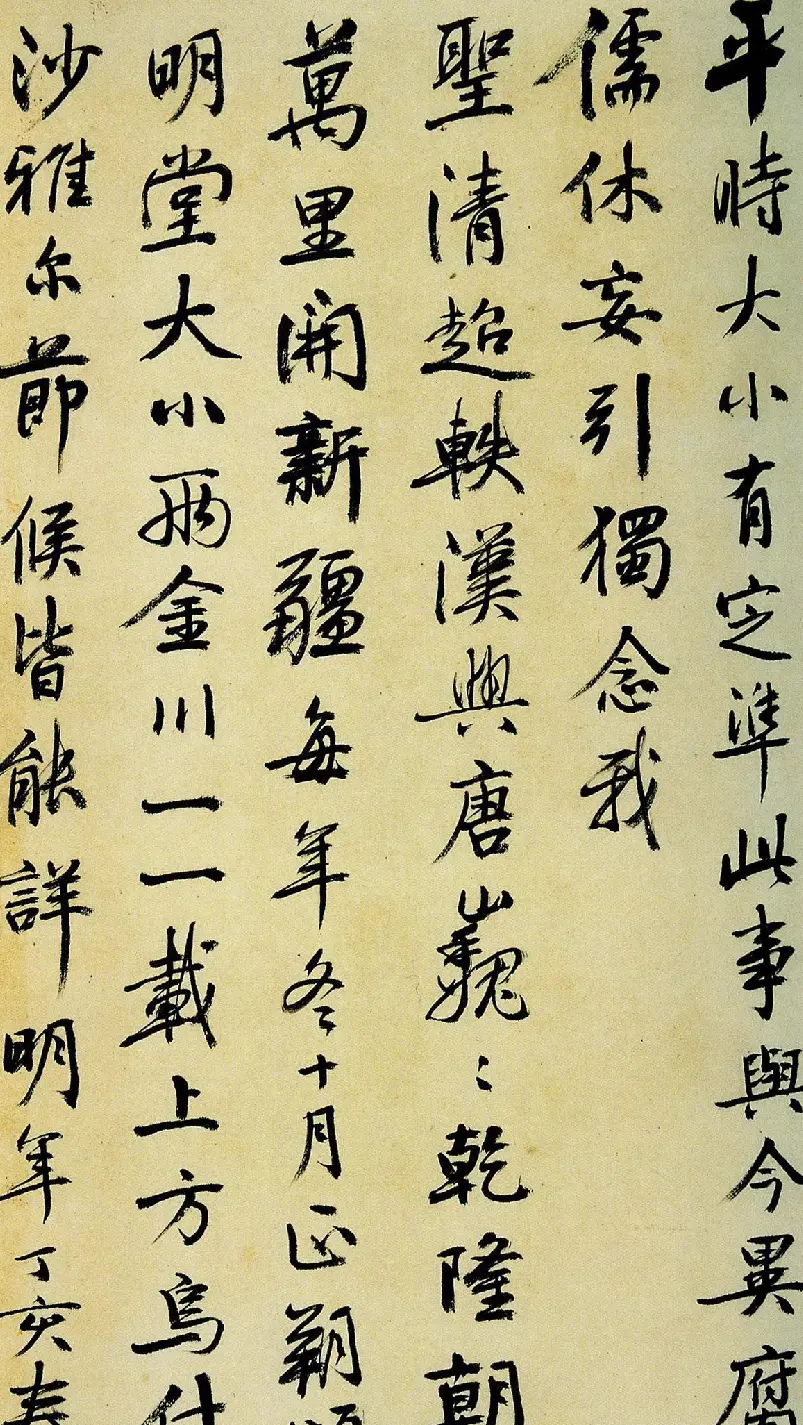 平時大小有定準此事與今異府
儒休妄引獨念我
聖清超軼漢與唐巍〻乾隆朝
萬里開新疆每年冬十月正朔頒
明堂大小兩金川一一載上方烏什
沙雅尔節候皆能詳明年丁亥春